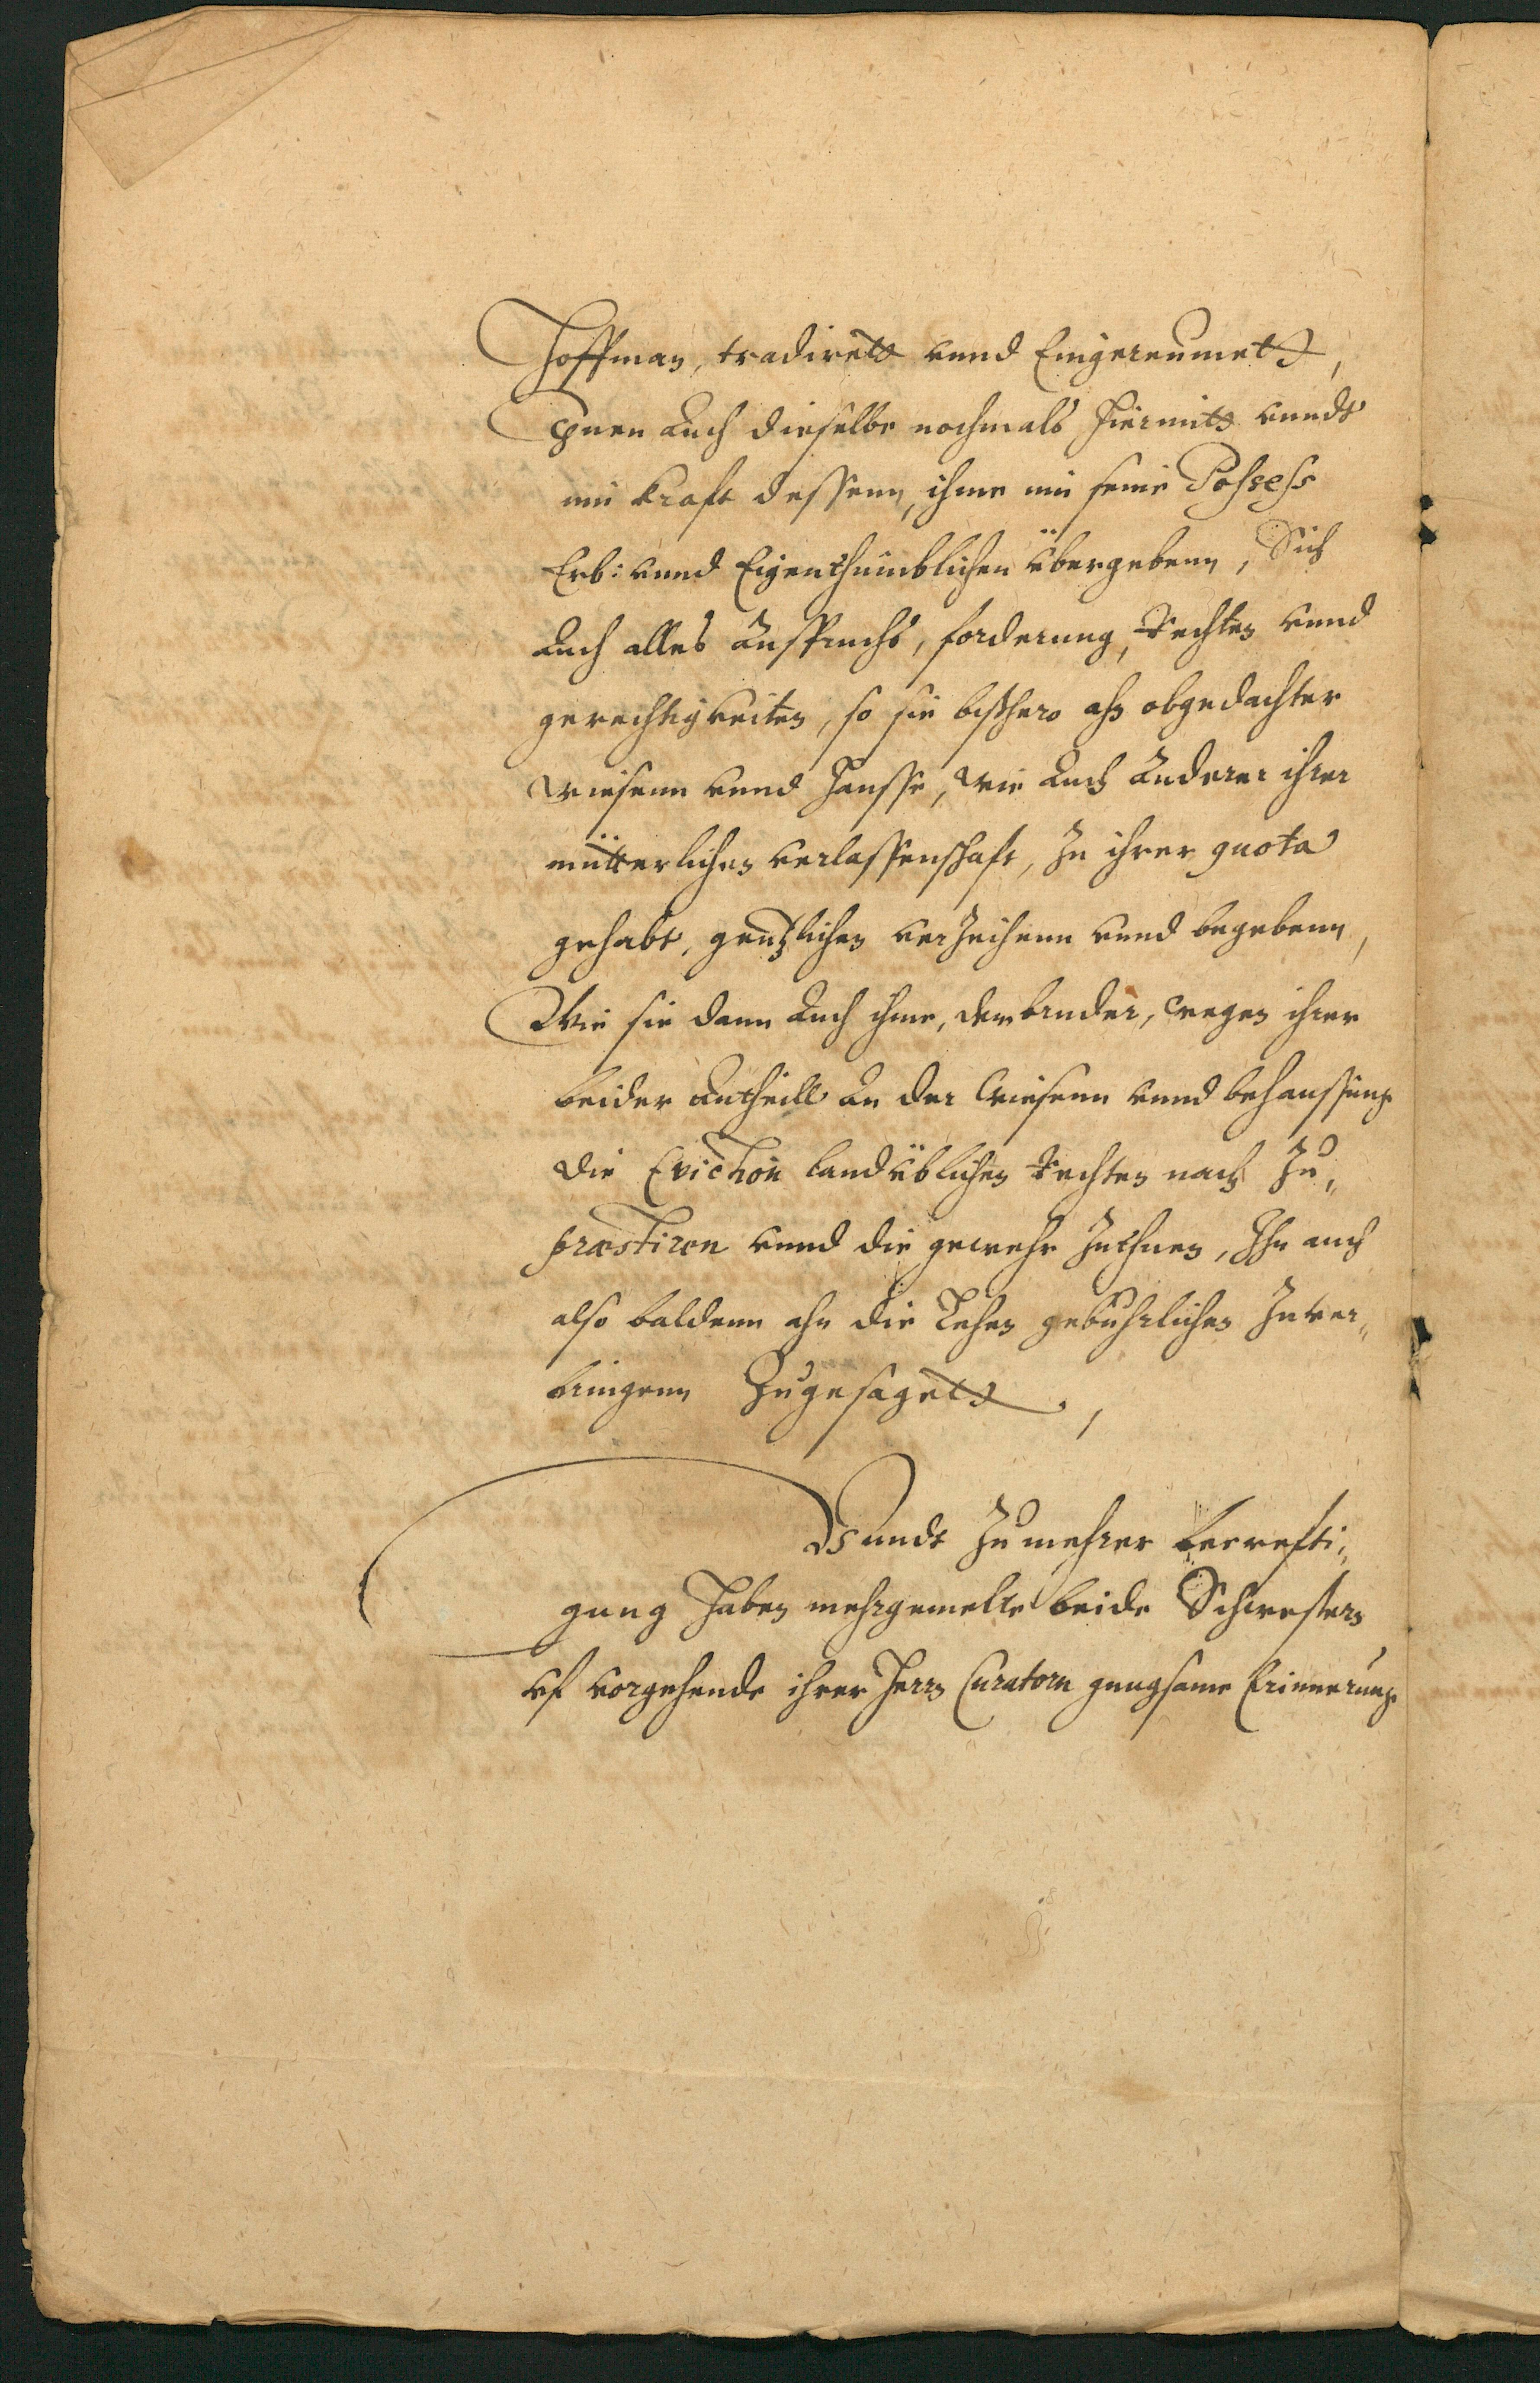 Hoffman, tradirett vnnd Eingereumett,
Thuen Auch dieselbe nochmals hiermitt vnndt
inn krafft dessenn, ihme inn seine Possess
Erb: vnnd Eigenthumblichen übergebenn, Sich
Auch alles Anspruchs, forderung, Rechten vnnd
gerechtigkeiten, so sie bißhero ahn obgedachter
Wiesenn vnnd Hausse, wie Auch Anderer ihrer
mütterlichen verlassenschafft, Zu ihrer quota
gehabt, gentzlichen verZeihenn vnnd begebenn,
Wie sie dann Auch ihme, dem bruder, wegen ihrer
beider Antheill An der Wiesenn vnnd behaussung
die Eviction landüblichen Rechten nach Zu„
præstiren vnnd die gewehr Zuthuen, Ihn auch
also baldenn ahn die Lehen gebührlichen Zuver„
bringenn Zugesagett.,
Vnndt Zu mehrer becrefti„
gung haben mehrgemelte beide Schwestern
vf vorgehende ihrer Herrn Curatorn gnugsame Erinnerung